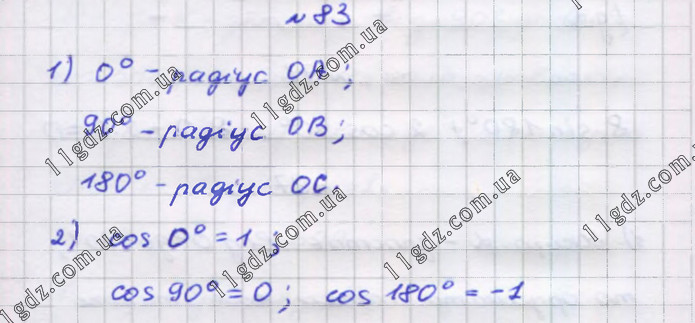 № 83
1) 0° - радіус OA;
90° - радіус OB;
180° - радіус OC.
2) cos 0° = 1;
cos 90° = 0; cos 180° = -1
11gdz.com.ua
11gdz.com.ua
11gdz.com.ua
11gdz.com.ua
11gdz.com.ua
11gdz.com.ua